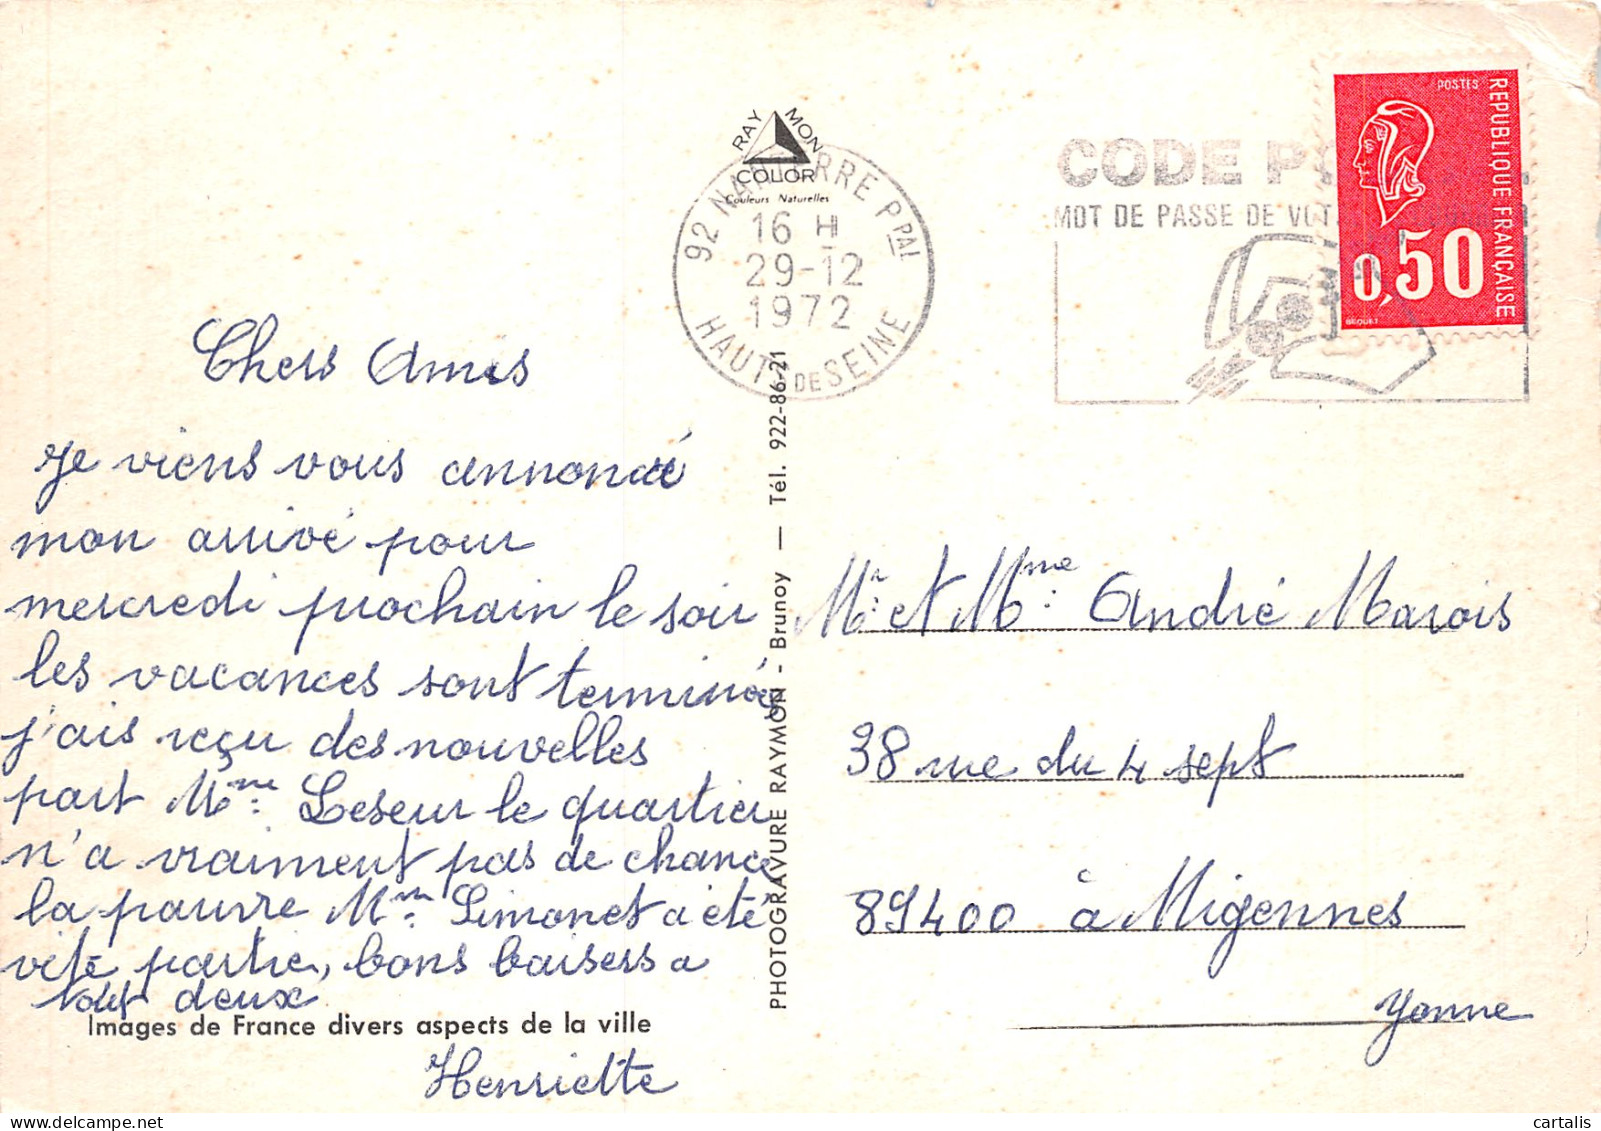 RAYMON
COLOR
Couleurs Naturelles
92 NANTERRE PPAL
16 H
29-12
1972
HAUTS DE SEINE
CODE P
MOT DE PASSE DE VOT
POSTES
REPUBLIQUE FRANÇAISE
0,50
BEQUET
Chers Amis
Je viens vous annoncé
mon arrivé pour
mercredi prochain le soir
les vacances sont terminés
j'ais reçu des nouvelles
part Mme: Leseur le quartier
n'a vraiment pas de chance
la pauvre Mm: Simonet a été
vite partie, bons baisers a
tous deux
Images de France divers aspects de la ville
Henriette
PHOTOGRAVURE RAYMON - Brunoy — Tél. 922-86-21
Mr: et Mme: André Marois
38 rue du 4 sept
89400 à Migennes
Yonne
cartalis